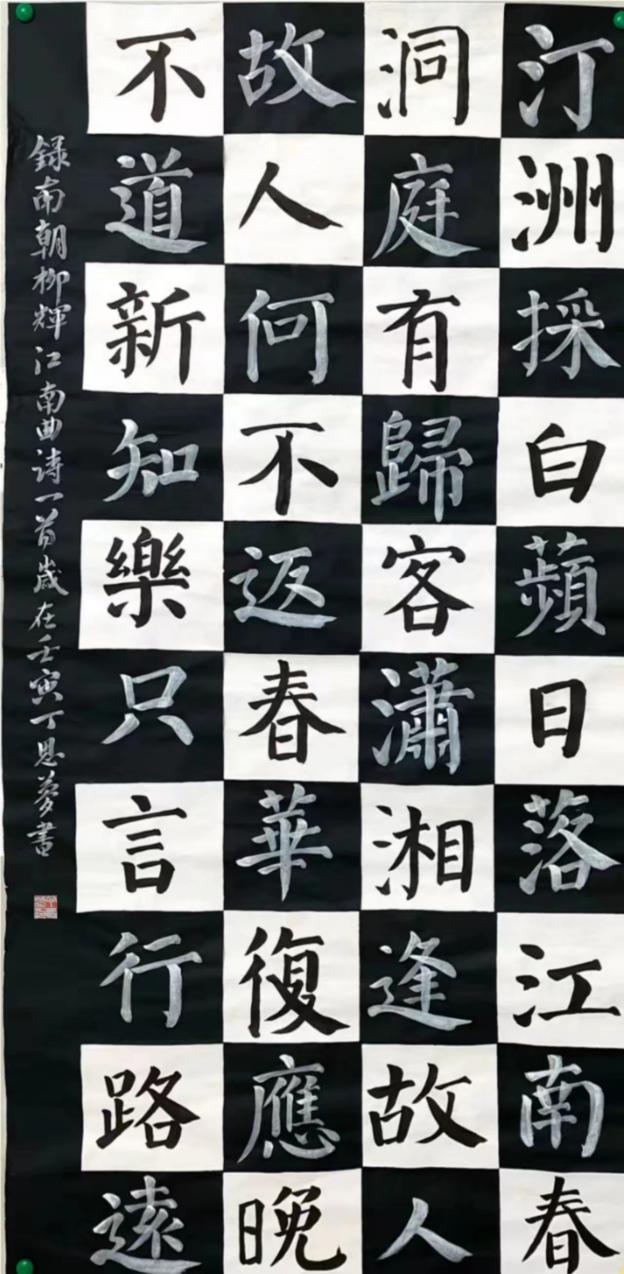 汀洲採白蘋日落江南春
洞庭有歸客瀟湘逢故人
故人何不返春華復應晚
不道新知樂只言行路遠
録南朝柳輝江南曲詩一首歲在壬寅丁恩夢書